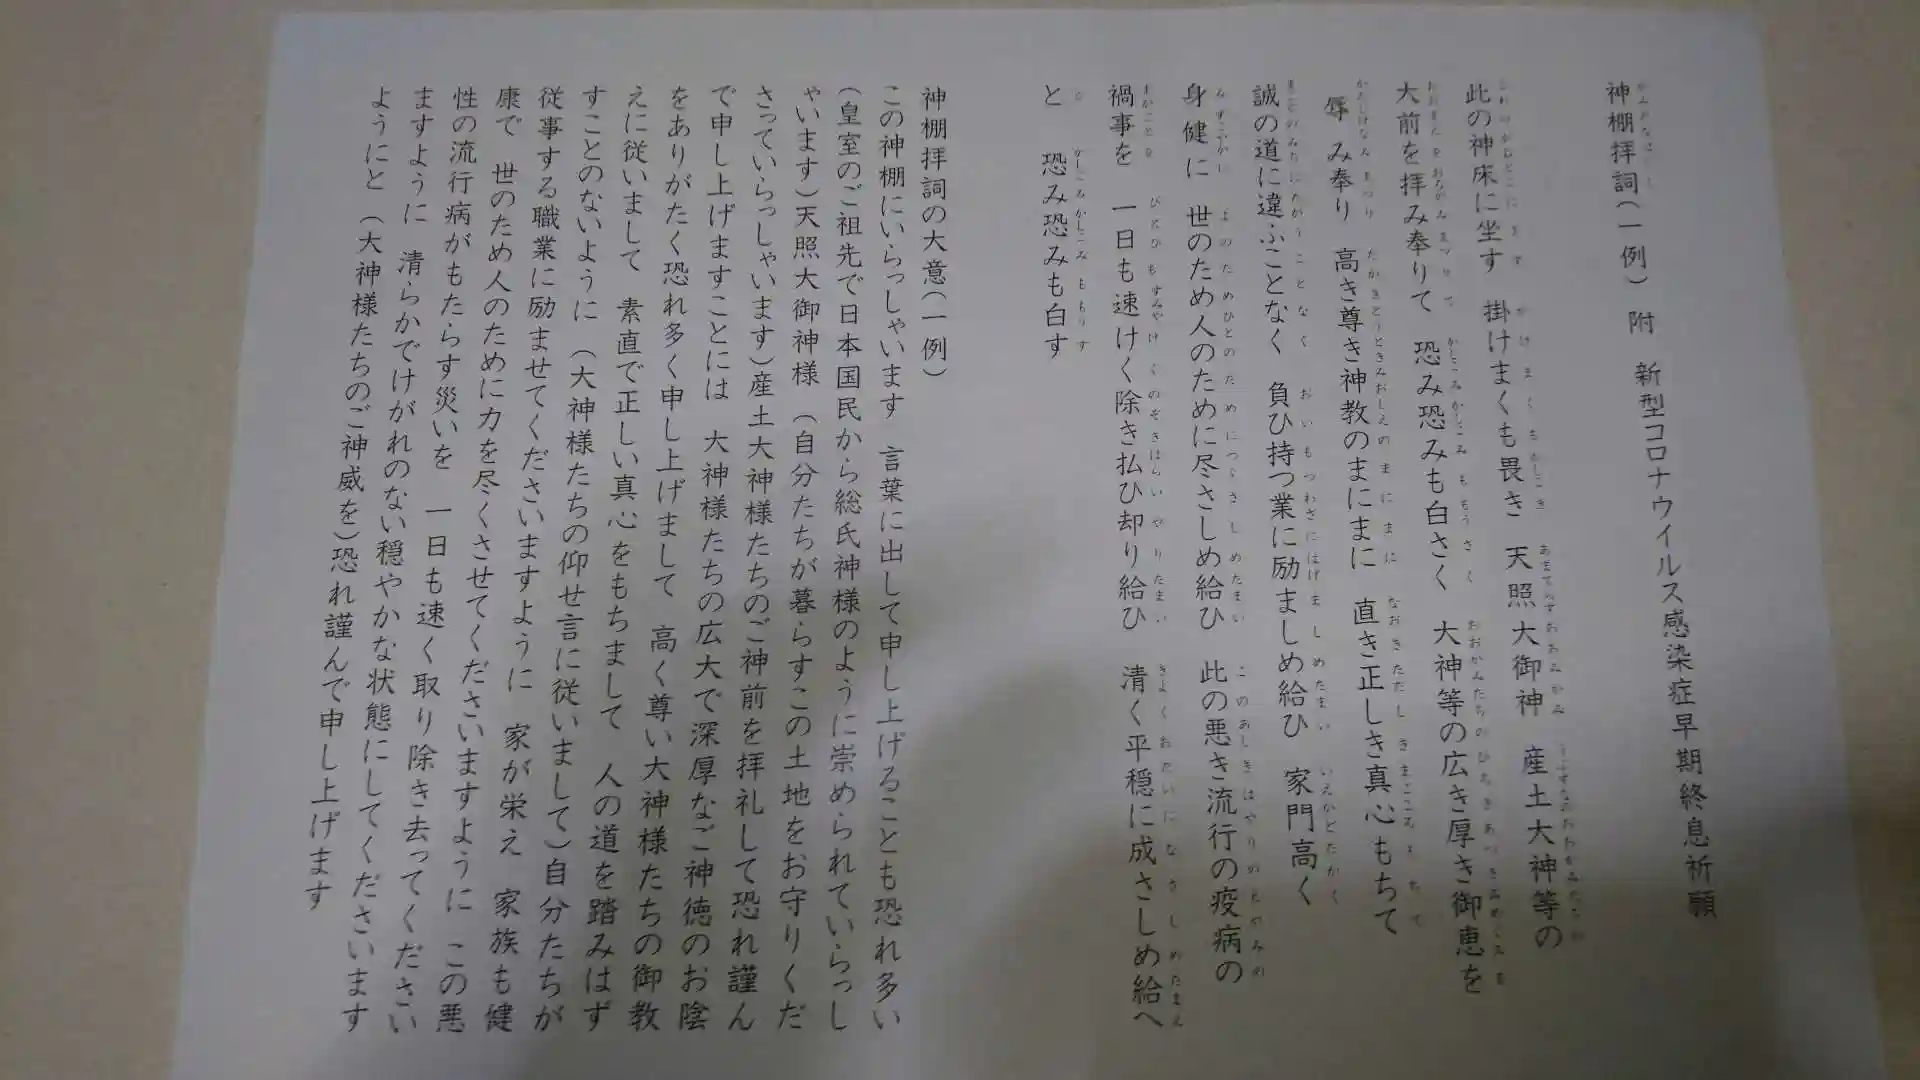 神棚拝詞(一例) 附 新型コロナウイルス感染症早期終息祈願
此の神床に坐す 掛けまくも畏き 天照大御神 産土大神等の
大前を拝み奉りて 恐み恐みも白さく 大神等の広き厚き御恵を
辱み奉り 高き尊き神教のまにまに 直き正しき真心もちて
誠の道に違ふことなく 負ひ持つ業に励ましめ給ひ 家門高く
身健に 世のため人のために尽さしめ給ひ 此の悪き流行の疫病の
禍事を 一日も速けく除き払ひ却り給ひ 清く平穏に成さしめ給へ
と 恐み恐みも白す
神棚拝詞の大意(一例)
この神棚にいらっしゃいます 言葉に出して申し上げることも恐れ多い
(皇室のご祖先で日本国民から総氏神様のように崇められていらっし
ゃいます)天照大御神様 (自分たちが暮らすこの土地をお守りくだ
さっていらっしゃいます)産土大神様たちのご神前を拝礼して恐れ謹ん
で申し上げますことには 大神様たちの広大で深厚なご神徳のお陰
をありがたく恐れ多く申し上げまして 高く尊い大神様たちの御教
えに従いまして 素直で正しい真心をもちまして 人の道を踏みはず
すことのないように (大神様たちの仰せ言に従いまして)自分たちが
従事する職業に励ませてくださいますように 家が栄え 家族も健
康で 世のため人のために力を尽くさせてくださいますように この悪
性の流行病がもたらす災いを 一日も速く取り除き去ってください
ますように 清らかでけがれのない穏やかな状態にしてくださいます
ようにと (大神様たちのご神威を)恐れ謹んで申し上げます